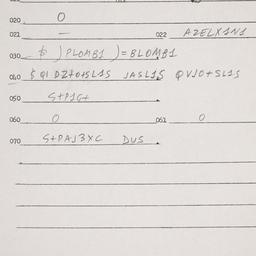 020 O
021 — 022 AZELX1N1
030 $ ) PLOMB1 ) = BLOMB1
040 $ QI DZTO+SL1S JASL1S QVJO+SL1S
050 S+P1G+
060 O 061 O
070 S+PAJ3XC DUS